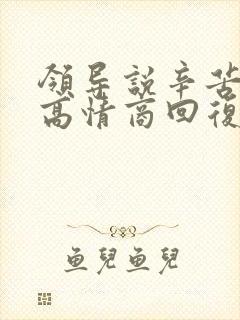 領导説辛苦
高情商回復
魚兒魚兒